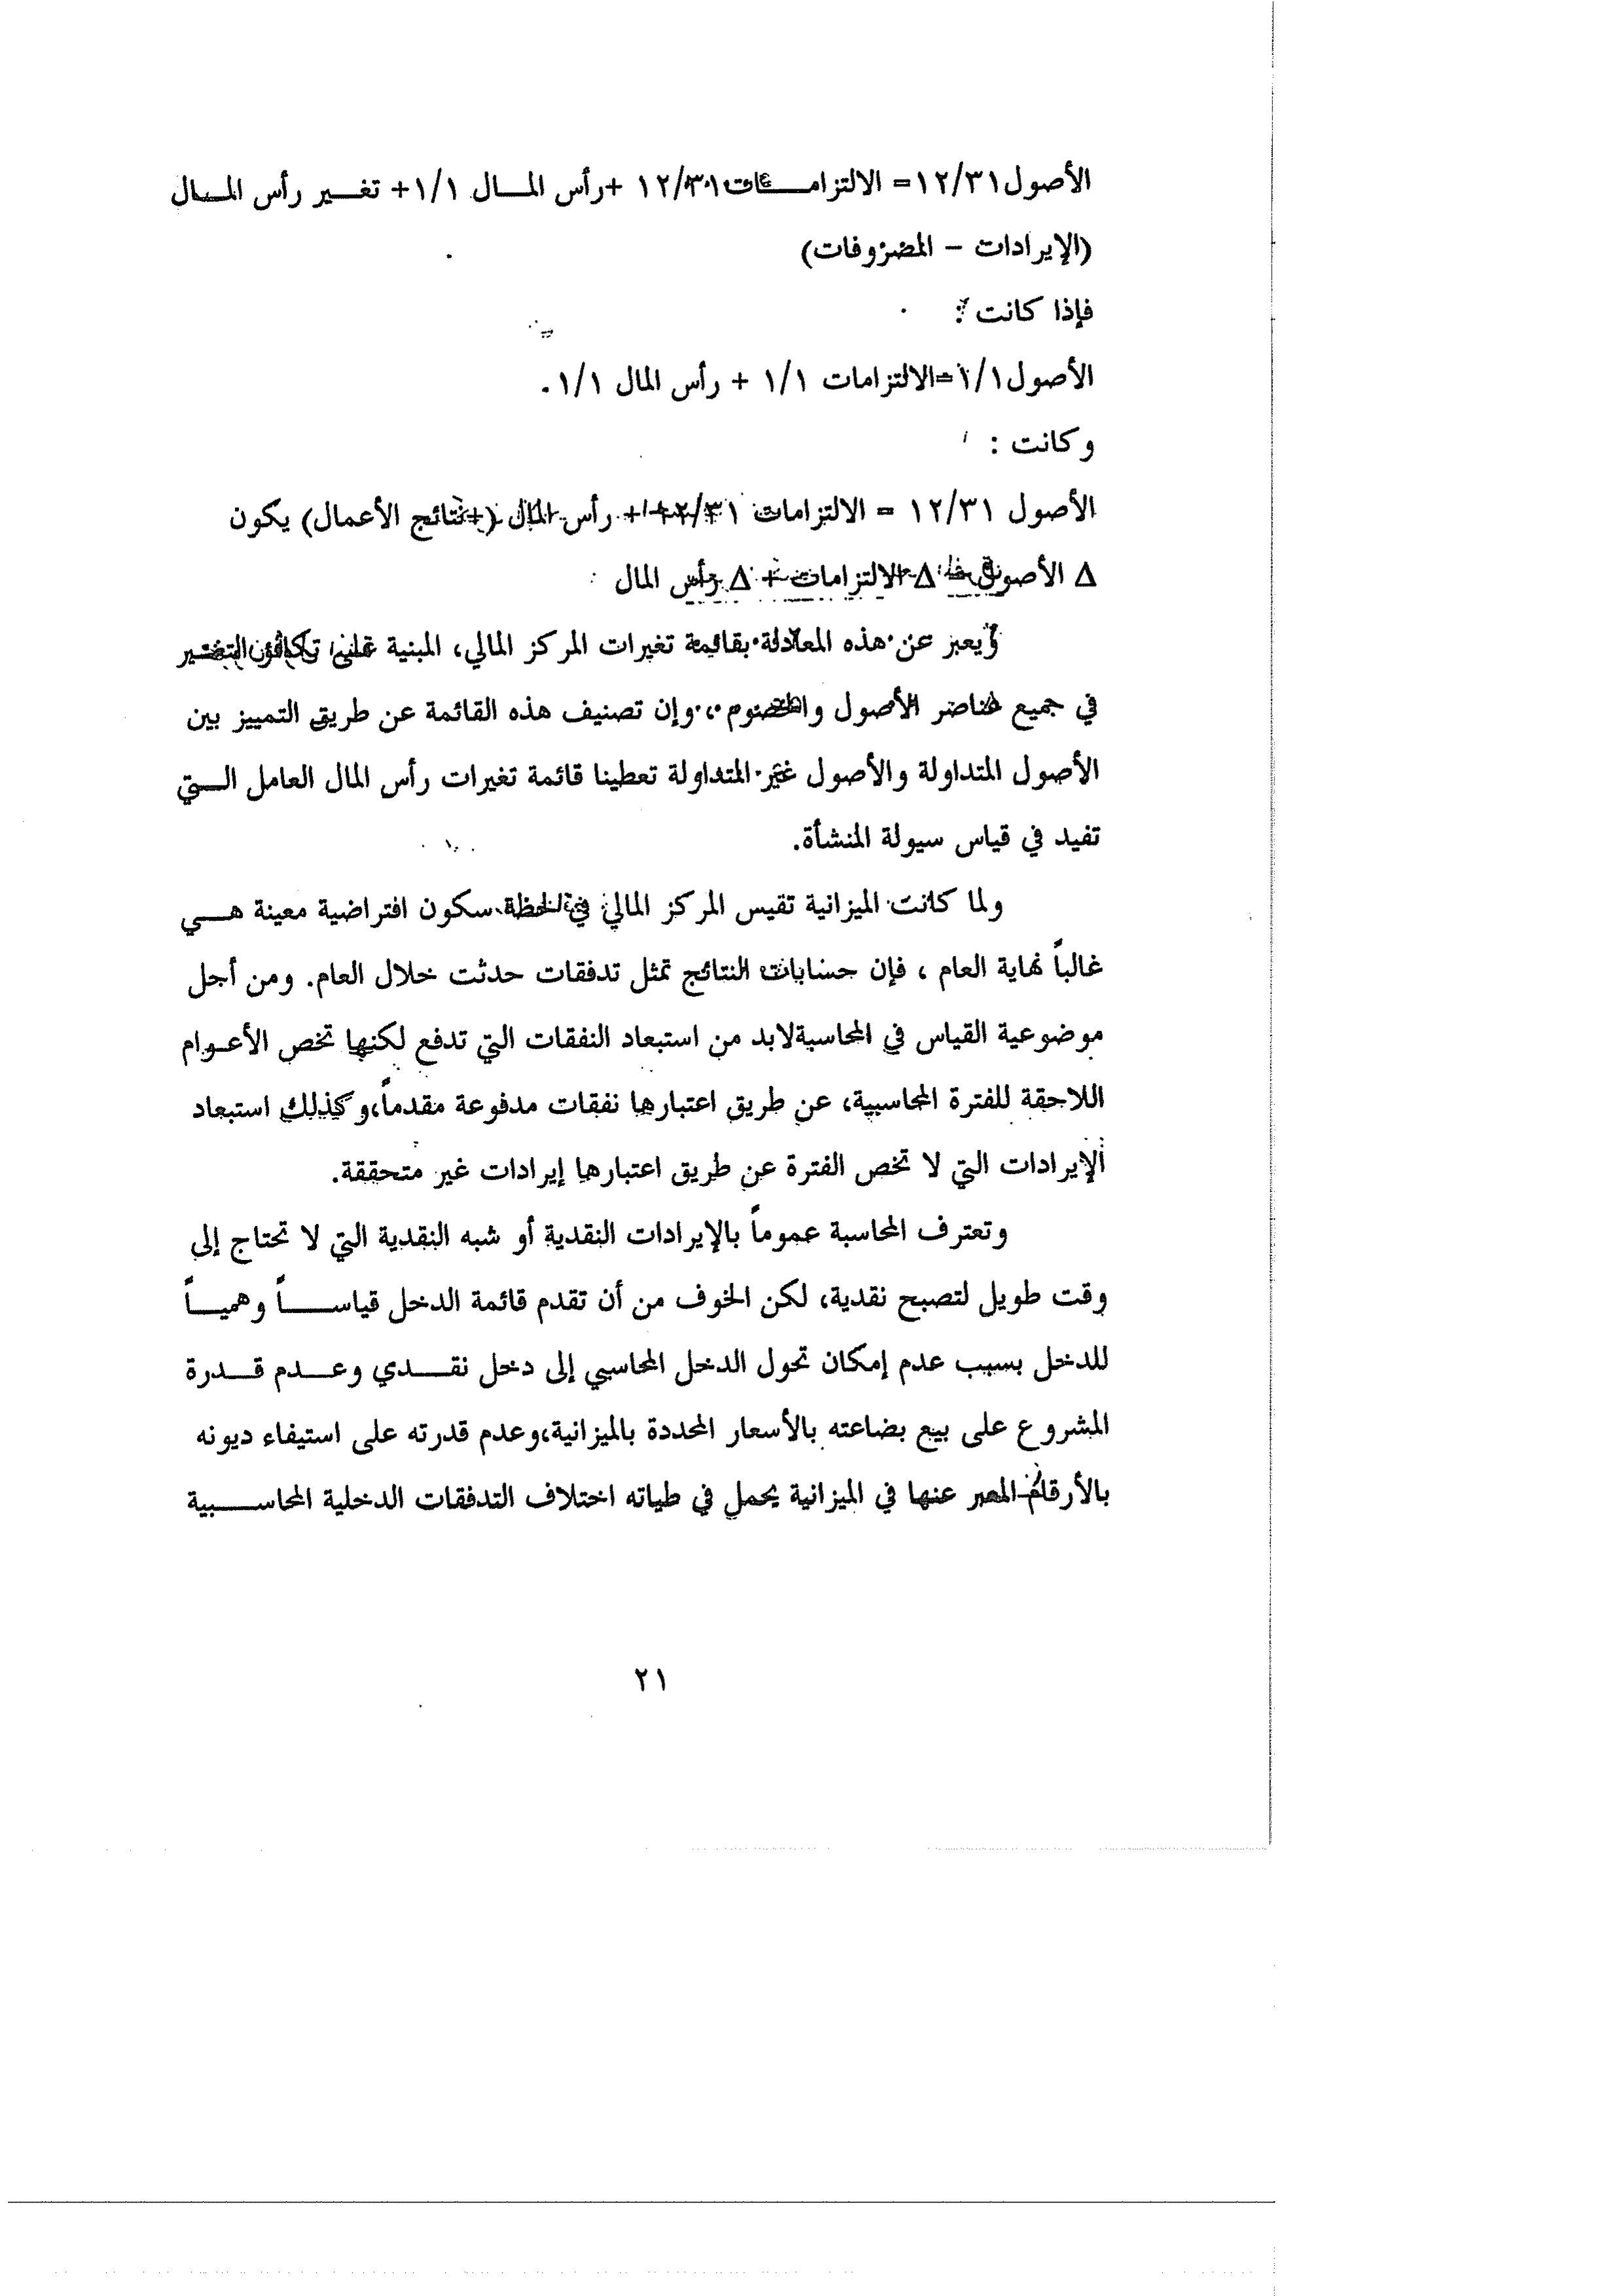 الأصول١٢/٣١= الالتزامـــات١٢/٣١ +رأس المــال ١/١+ تغــير رأس المــال
(الإيرادات – المصروفات)
فإذا كانت :
الأصول١/١=الالتزامات ١/١ + رأس المال ١/١.
وكانت :
الأصول ١٢/٣١ = الالتزامات ١٢/٣١+ رأس المال (+نتائج الأعمال) يكون
Δ الأصول = Δ الالتزامات + Δ رأس المال
ويعبر عن هذه المعادلة بقائمة تغيرات المركز المالي، المبنية على تكافؤ التغـير
في جميع عناصر الأصول والخصوم، وإن تصنيف هذه القائمة عن طريق التمييز بين
الأصول المتداولة والأصول غير المتداولة تعطينا قائمة تغيرات رأس المال العامل الــتي
تفيد في قياس سيولة المنشأة.
ولما كانت الميزانية تقيس المركز المالي في لحظة سكون افتراضية معينة هــي
غالباً نهاية العام ، فإن حسابات النتائج تمثل تدفقات حدثت خلال العام. ومن أجل
موضوعية القياس في المحاسبةلابد من استبعاد النفقات التي تدفع لكنها تخص الأعـوام
اللاحقة للفترة المحاسبية، عن طريق اعتبارها نفقات مدفوعة مقدماً،وكذلك استبعاد
الإيرادات التي لا تخص الفترة عن طريق اعتبارها إيرادات غير متحققة.
وتعترف المحاسبة عموماً بالإيرادات النقدية أو شبه النقدية التي لا تحتاج إلى
وقت طويل لتصبح نقدية، لكن الخوف من أن تقدم قائمة الدخل قياســـاً وهميـــاً
للدخل بسبب عدم إمكان تحول الدخل المحاسبي إلى دخل نقــدي وعــدم قــدرة
المشروع على بيع بضاعته بالأسعار المحددة بالميزانية،وعدم قدرته على استيفاء ديونه
بالأرقام المعبر عنها في الميزانية يحمل في طياته اختلاف التدفقات الدخلية المحاســـبية
٢١